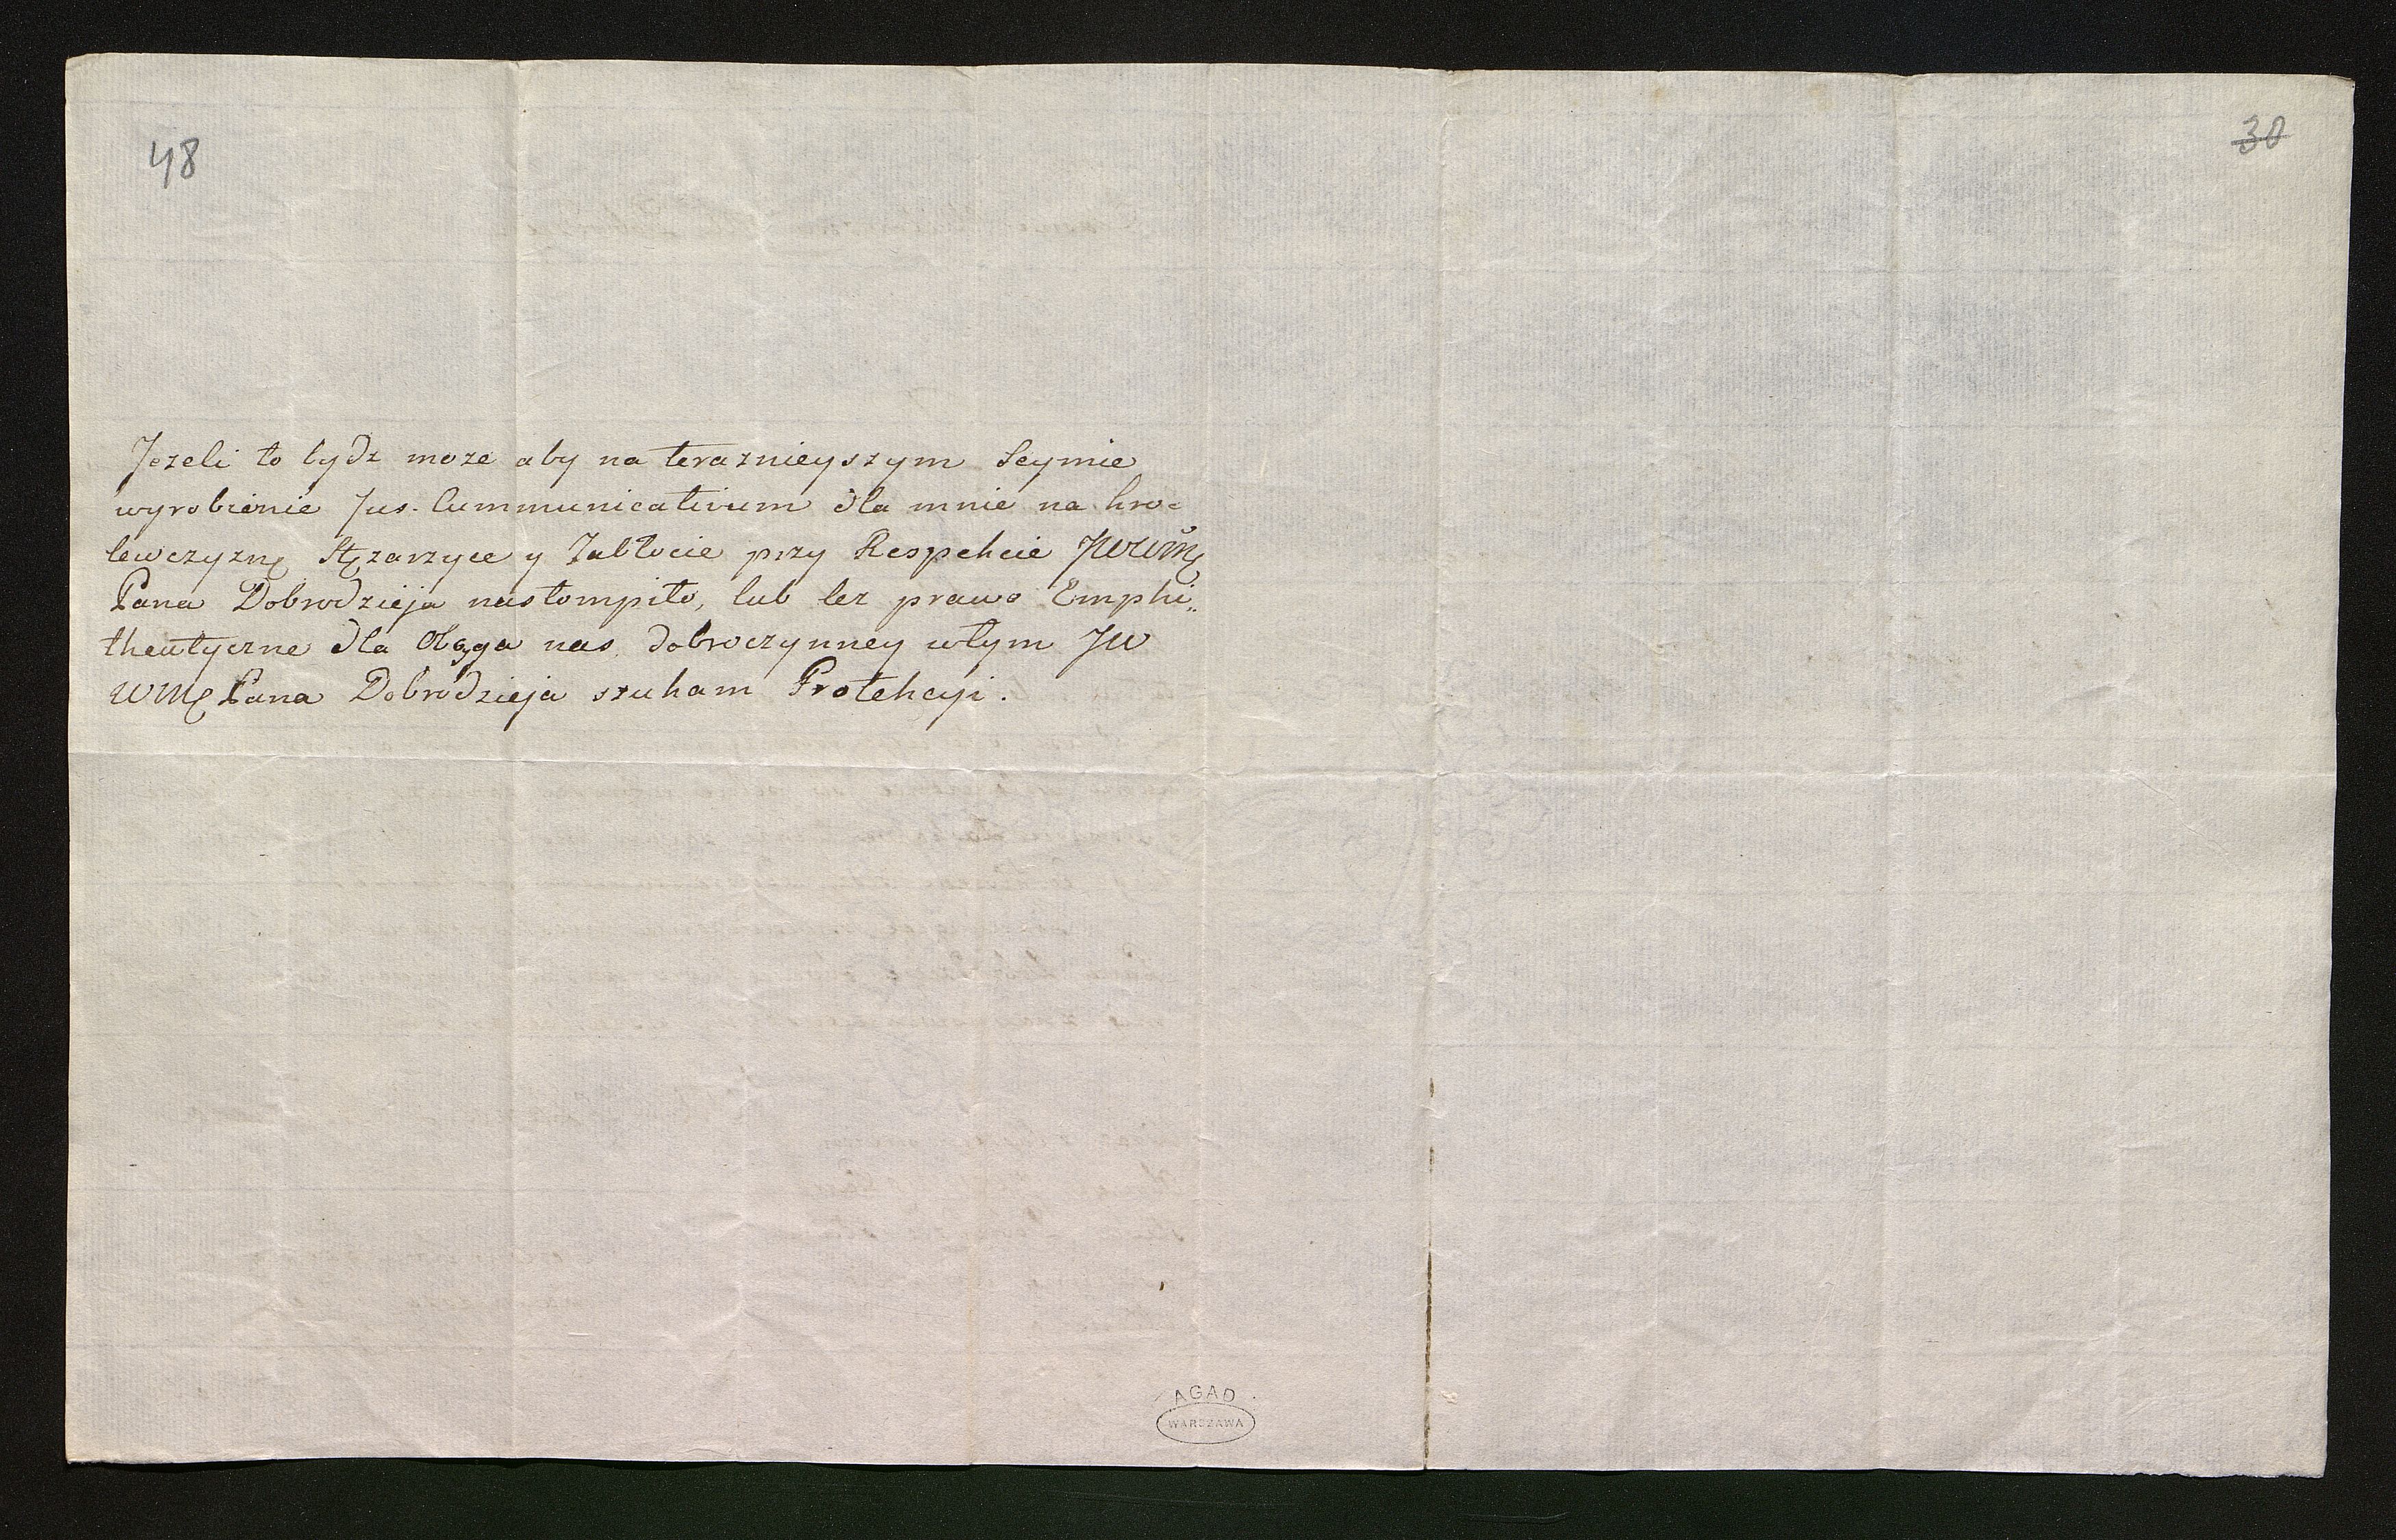 48
30
Jezeli to bydz moze aby na teraznieyszym Seymie
wyrobienie Jus Cummunicativum dla mnie na kro=
lewczyznę Stęzarzyce y Zabłocie przy Respekcie JWWMę
Pana Dobrodzieja nastompiło, lub tez prawo Emphi„
theutyczne dla Obojga nas dobroczynney wtym JW
WMę Pana Dobrodzieja szukam Protekcyi.
AGAD
WARSZAWA